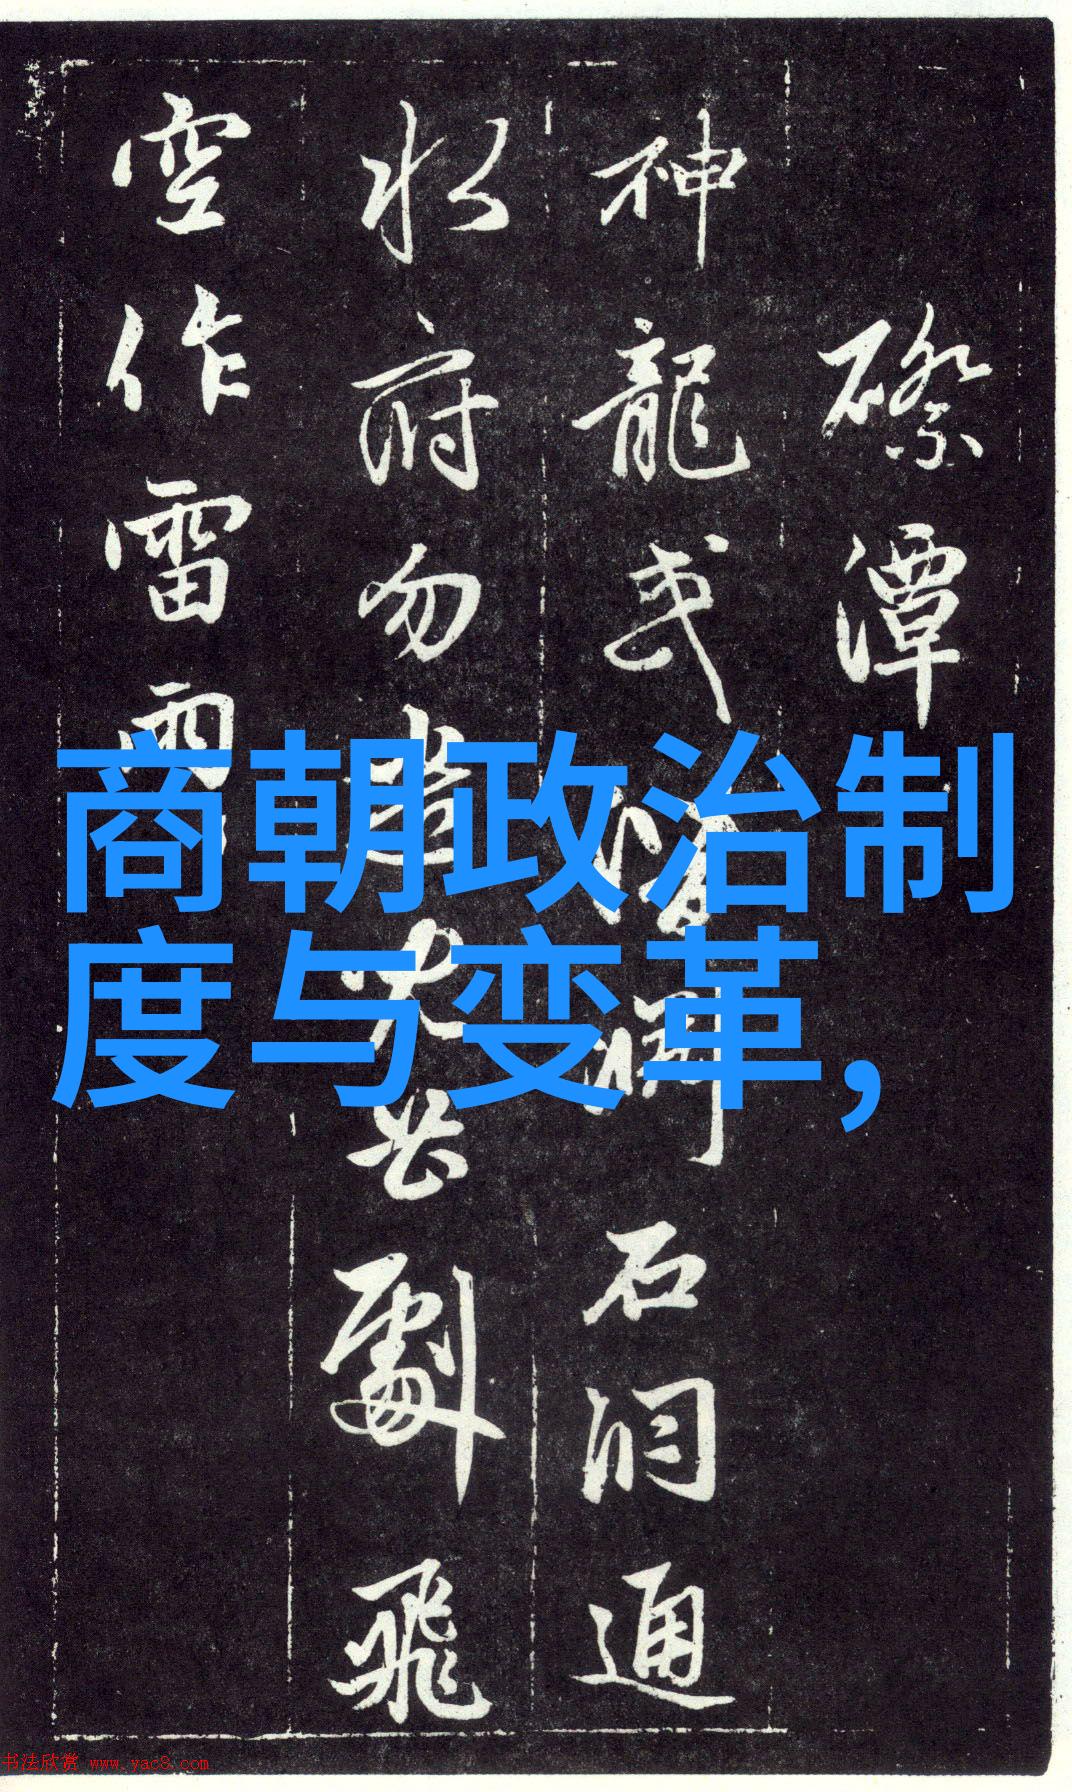 潭
神龍或石洞通
水府勿劇飛
空作雷雨
商朝政治制
度与变革,
书法欣赏 www.yac8.com